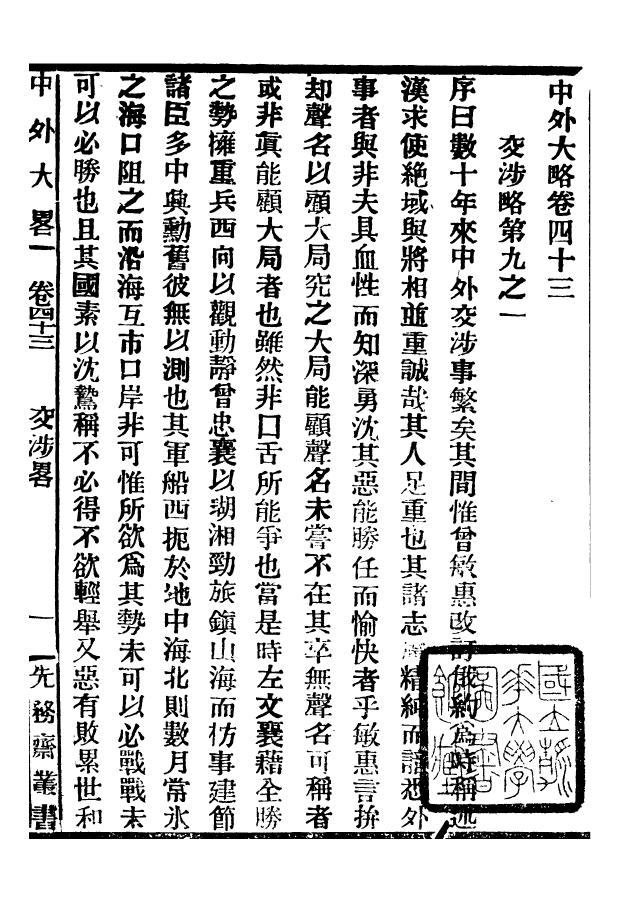 中外大略卷四十三
交涉略第九之一
序曰數十年來中外交涉事繁矣其間惟曾敏惠改訂俄約為時稱述
漢求使絶域與將相並重誠哉其人足重也其諸志精純而諳悉外
事者與非夫具血性而知深勇沈其惡能勝任而愉快者乎敏惠言拚
却聲名以顧大局究之大局能顧聲名未嘗不在其卒無聲名可稱者
或非眞能顧大局者也雖然非口舌所能爭也當是時左文襄藉全勝
之勢擁重兵西向以觀動靜曾忠襄以瑚湘勁旅鎭山海而彷事建節
諸臣多中興勳舊彼無以測也其軍船西扼於地中海北則數月常氷
之海口阻之而沿海互市口岸非可惟所欲為其勢未可以必戰戰未
可以必勝也且其國素以沈鷙稱不必得不欲輕舉又惡有敗累世和
中外大畧一 卷四十三 交涉畧 一 先務齋叢書
國立 大學 圖書